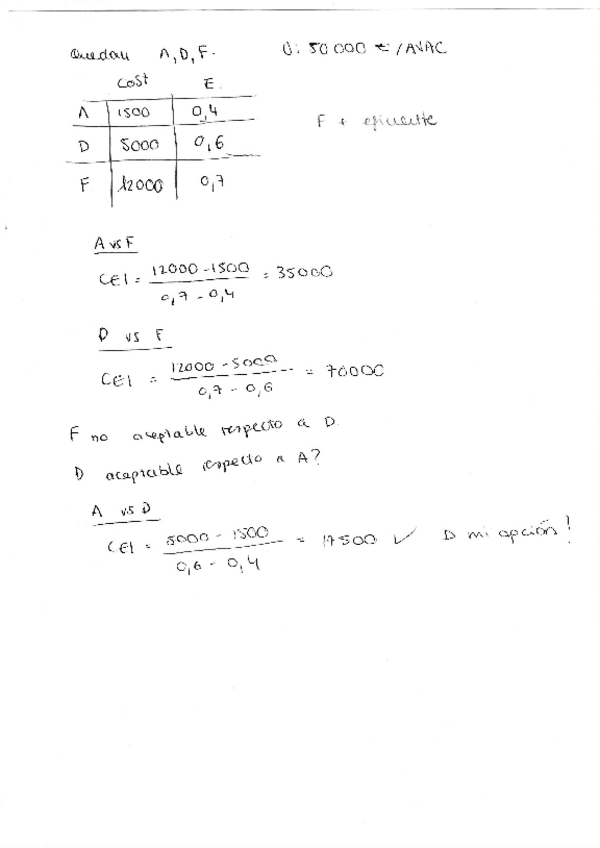 Quedan A, D, F. U: 50000 €/AVAC
Cost E
A 1500 0,4
D 5000 0,6
F 12000 0,7
F + eficiente
A vs F
CEI = 12000 - 1500 / 0,7 - 0,4 = 35000
D vs F
CEI = 12000 - 5000 / 0,7 - 0,6 = 70000
F no aceptable respecto a D.
D aceptable respecto a A?
A vs D
CEI = 5000 - 1500 / 0,6 - 0,4 = 17500 ✓ D mi opción!